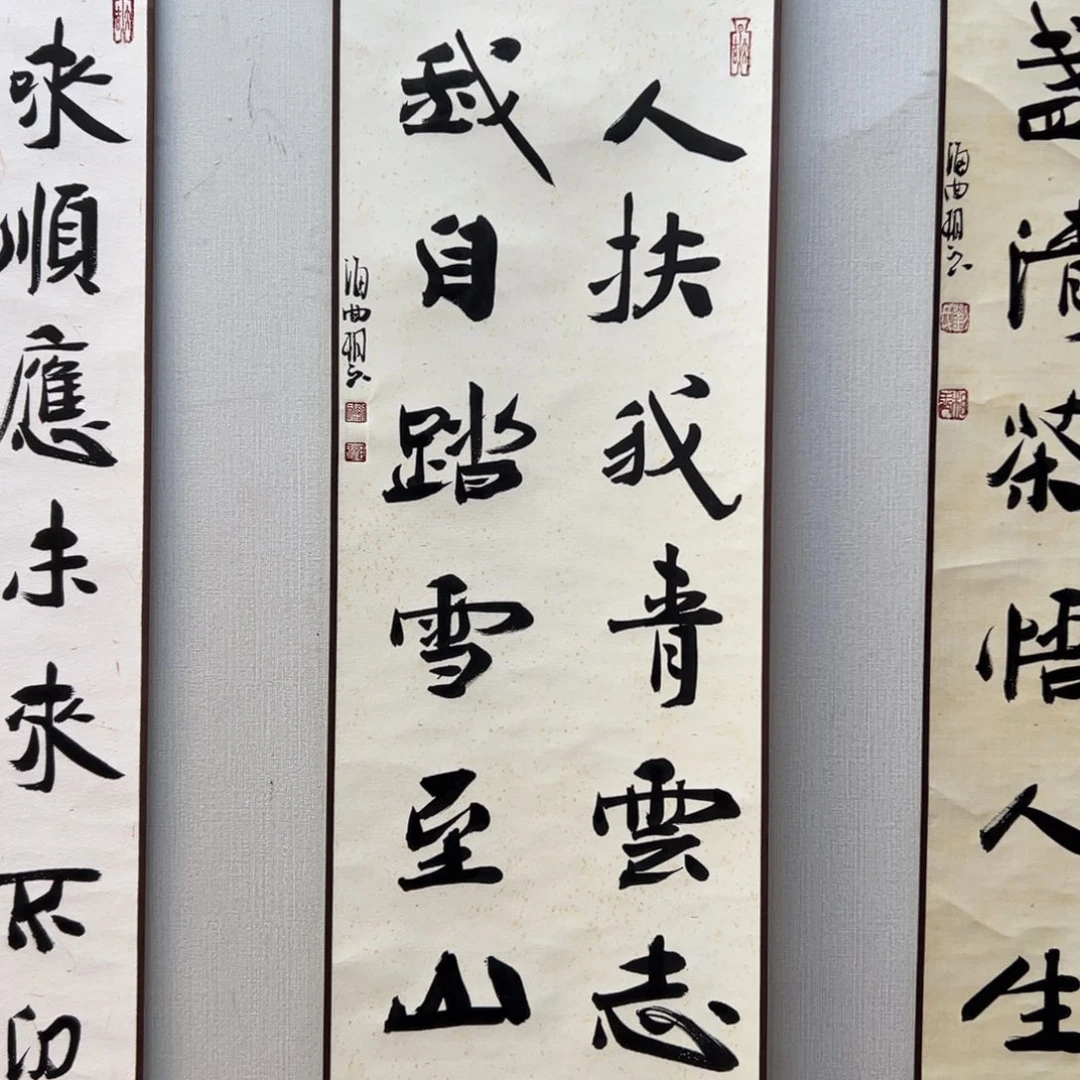 盞清茶悟人生
人扶我青雲志
我自踏雪至山
來順應未來不